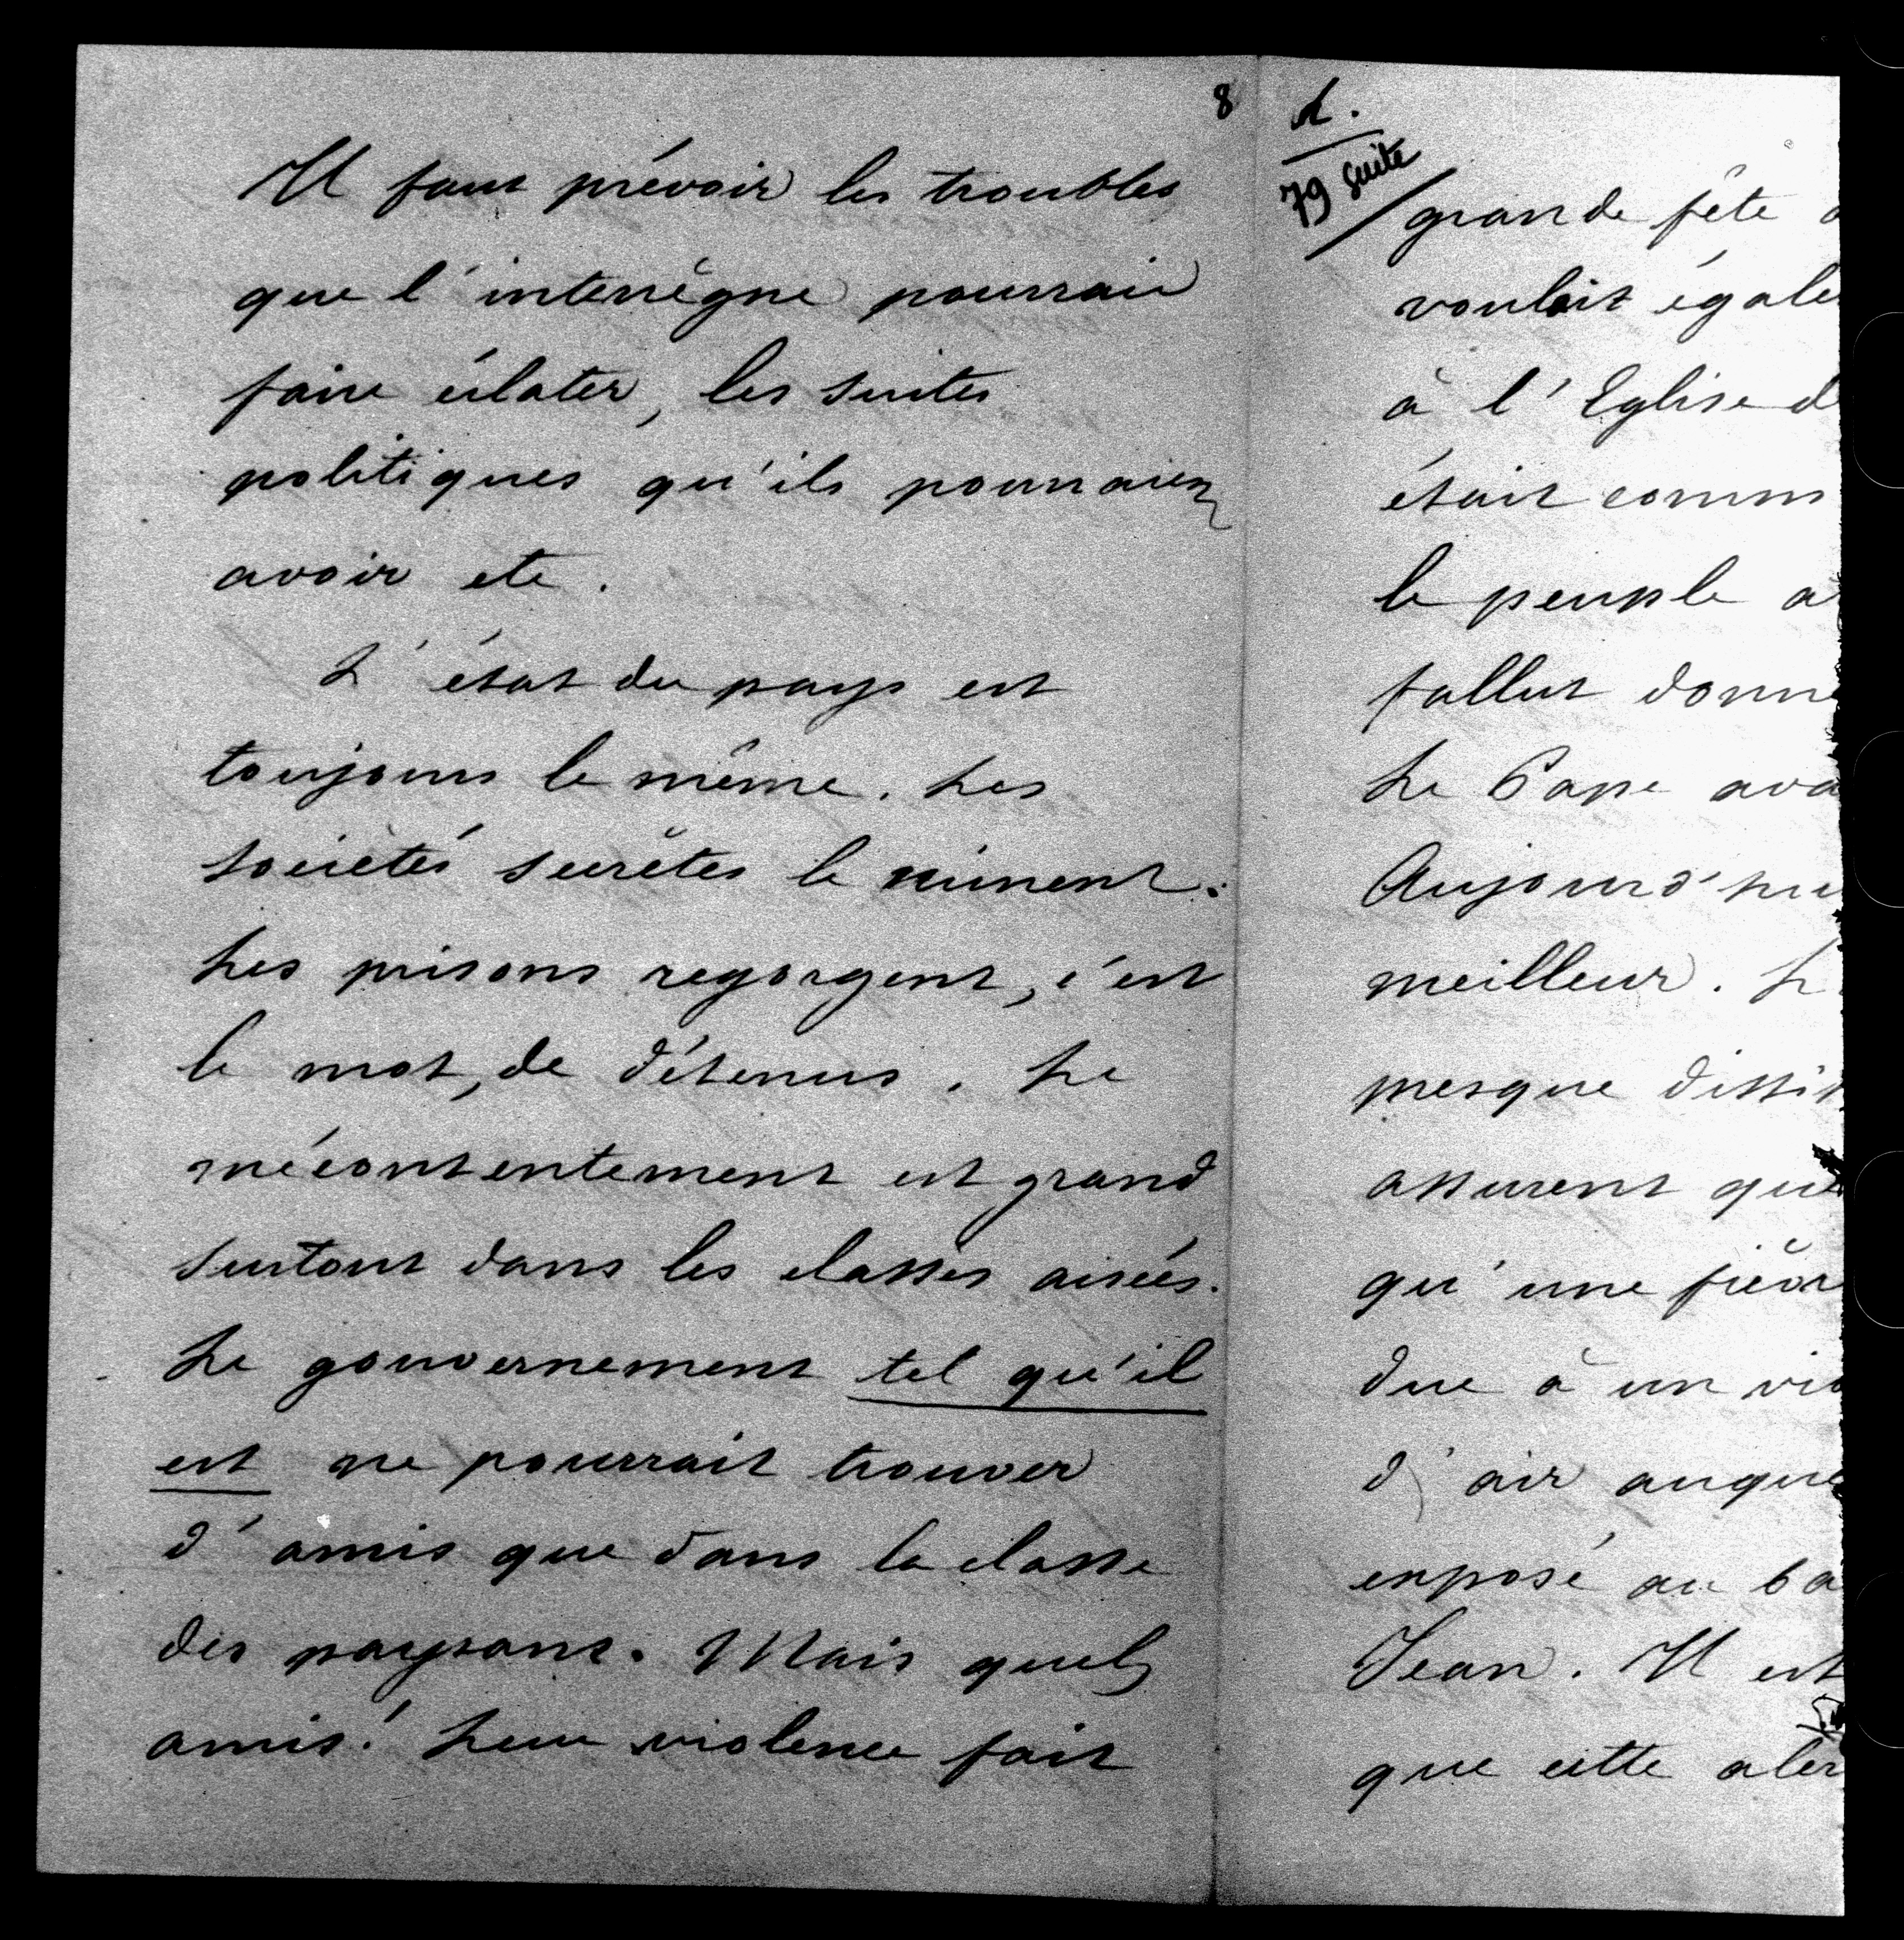 8
Il faut prévoir les troubles
que l'interrègne pourrait
faire éclater, les suites
politiques qu'ils pourraient
avoir etc.
L'état du pays est
toujours le même. Les
sociétés secrètes le minent.
Les prisons regorgent, c'est
le mot, de détenus. Le
mécontentement est grand
surtout dans les classes aisées.
Le gouvernement tel qu'il
est ne pourrait trouver
d'amis que dans la classe
des paysans. Mais quels
amis! Leur violence fait
79 suite
grande fête
voulait égale
à l'Eglise d
était comm
le peuple a
fallut donne
Le Pape ava
Aujourd'hu
meilleur. L
presque dissip
assurent que
qu'une fièvr
due à un vio
d'air auque
exposé au ba
Jean. Il est
que cette aler